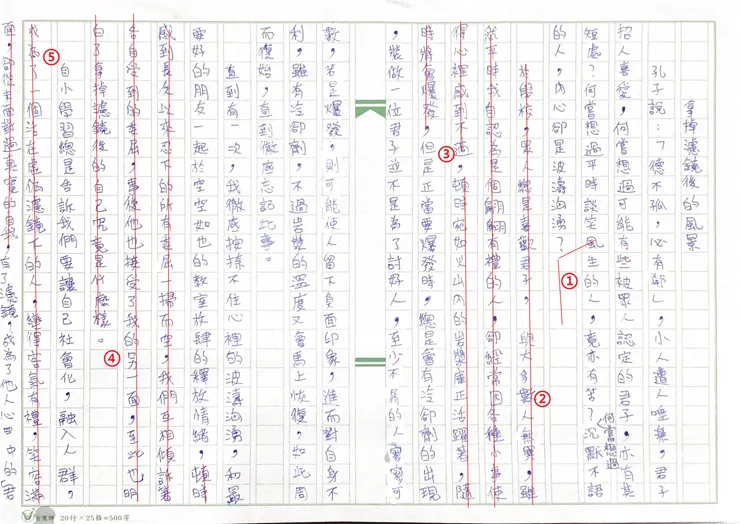 拿掉濾鏡後的風景
孔子說：「德不孤，必有鄰」，小人遭人唾棄，君子
招人喜愛，何嘗想過可能有些被眾人認定的君子，亦有其
短處？何嘗想過平時談空風生的人，竟亦有苦？何嘗想過沉默不語
的人，內心卻是波濤洶湧？
於學校，眾人總是喜歡君子，與大多數人無異，雖
然平時我自認為是個翩翩有禮的人，卻經常因各種小事使
得心裡感到不適，頓時宛如火山內的岩漿產正活躍著，隨
時將會爆發，但是正當要爆發時，總是會有冷卻劑的出現
，裝做一位君子並不是為了討好人，至少不長的人寥寥可
數，若是爆發，則可能使人留下負面印象，進而對自身不
利，雖有冷卻劑，不過岩漿的溫度又會馬上恢復，如此周
而復始，直到徹底忘記此事。
直到有一次，我徹底抽揍不住心裡的波濤洶湧，和最
要好的朋友一起於空空如也的教室放肆的釋放情緒，頓時
感到長久以來忍下的所有委屈一掃而空，我們互相傾訴著
各自受到的委屈，事後他也接受了我的另一面，至此也明
白了拿掉濾鏡後的自己究竟是什麼樣。
自小學習總是告訴我們要讓自己社會化，融入人群，
成為了一個活在虛偽濾鏡下的人，變得客氣有禮，笑容滿
面，卻從未面對過真實的自我，有了濾鏡，成為了他人心目中的君
①
②
③
④
⑤
20行×25格=500字